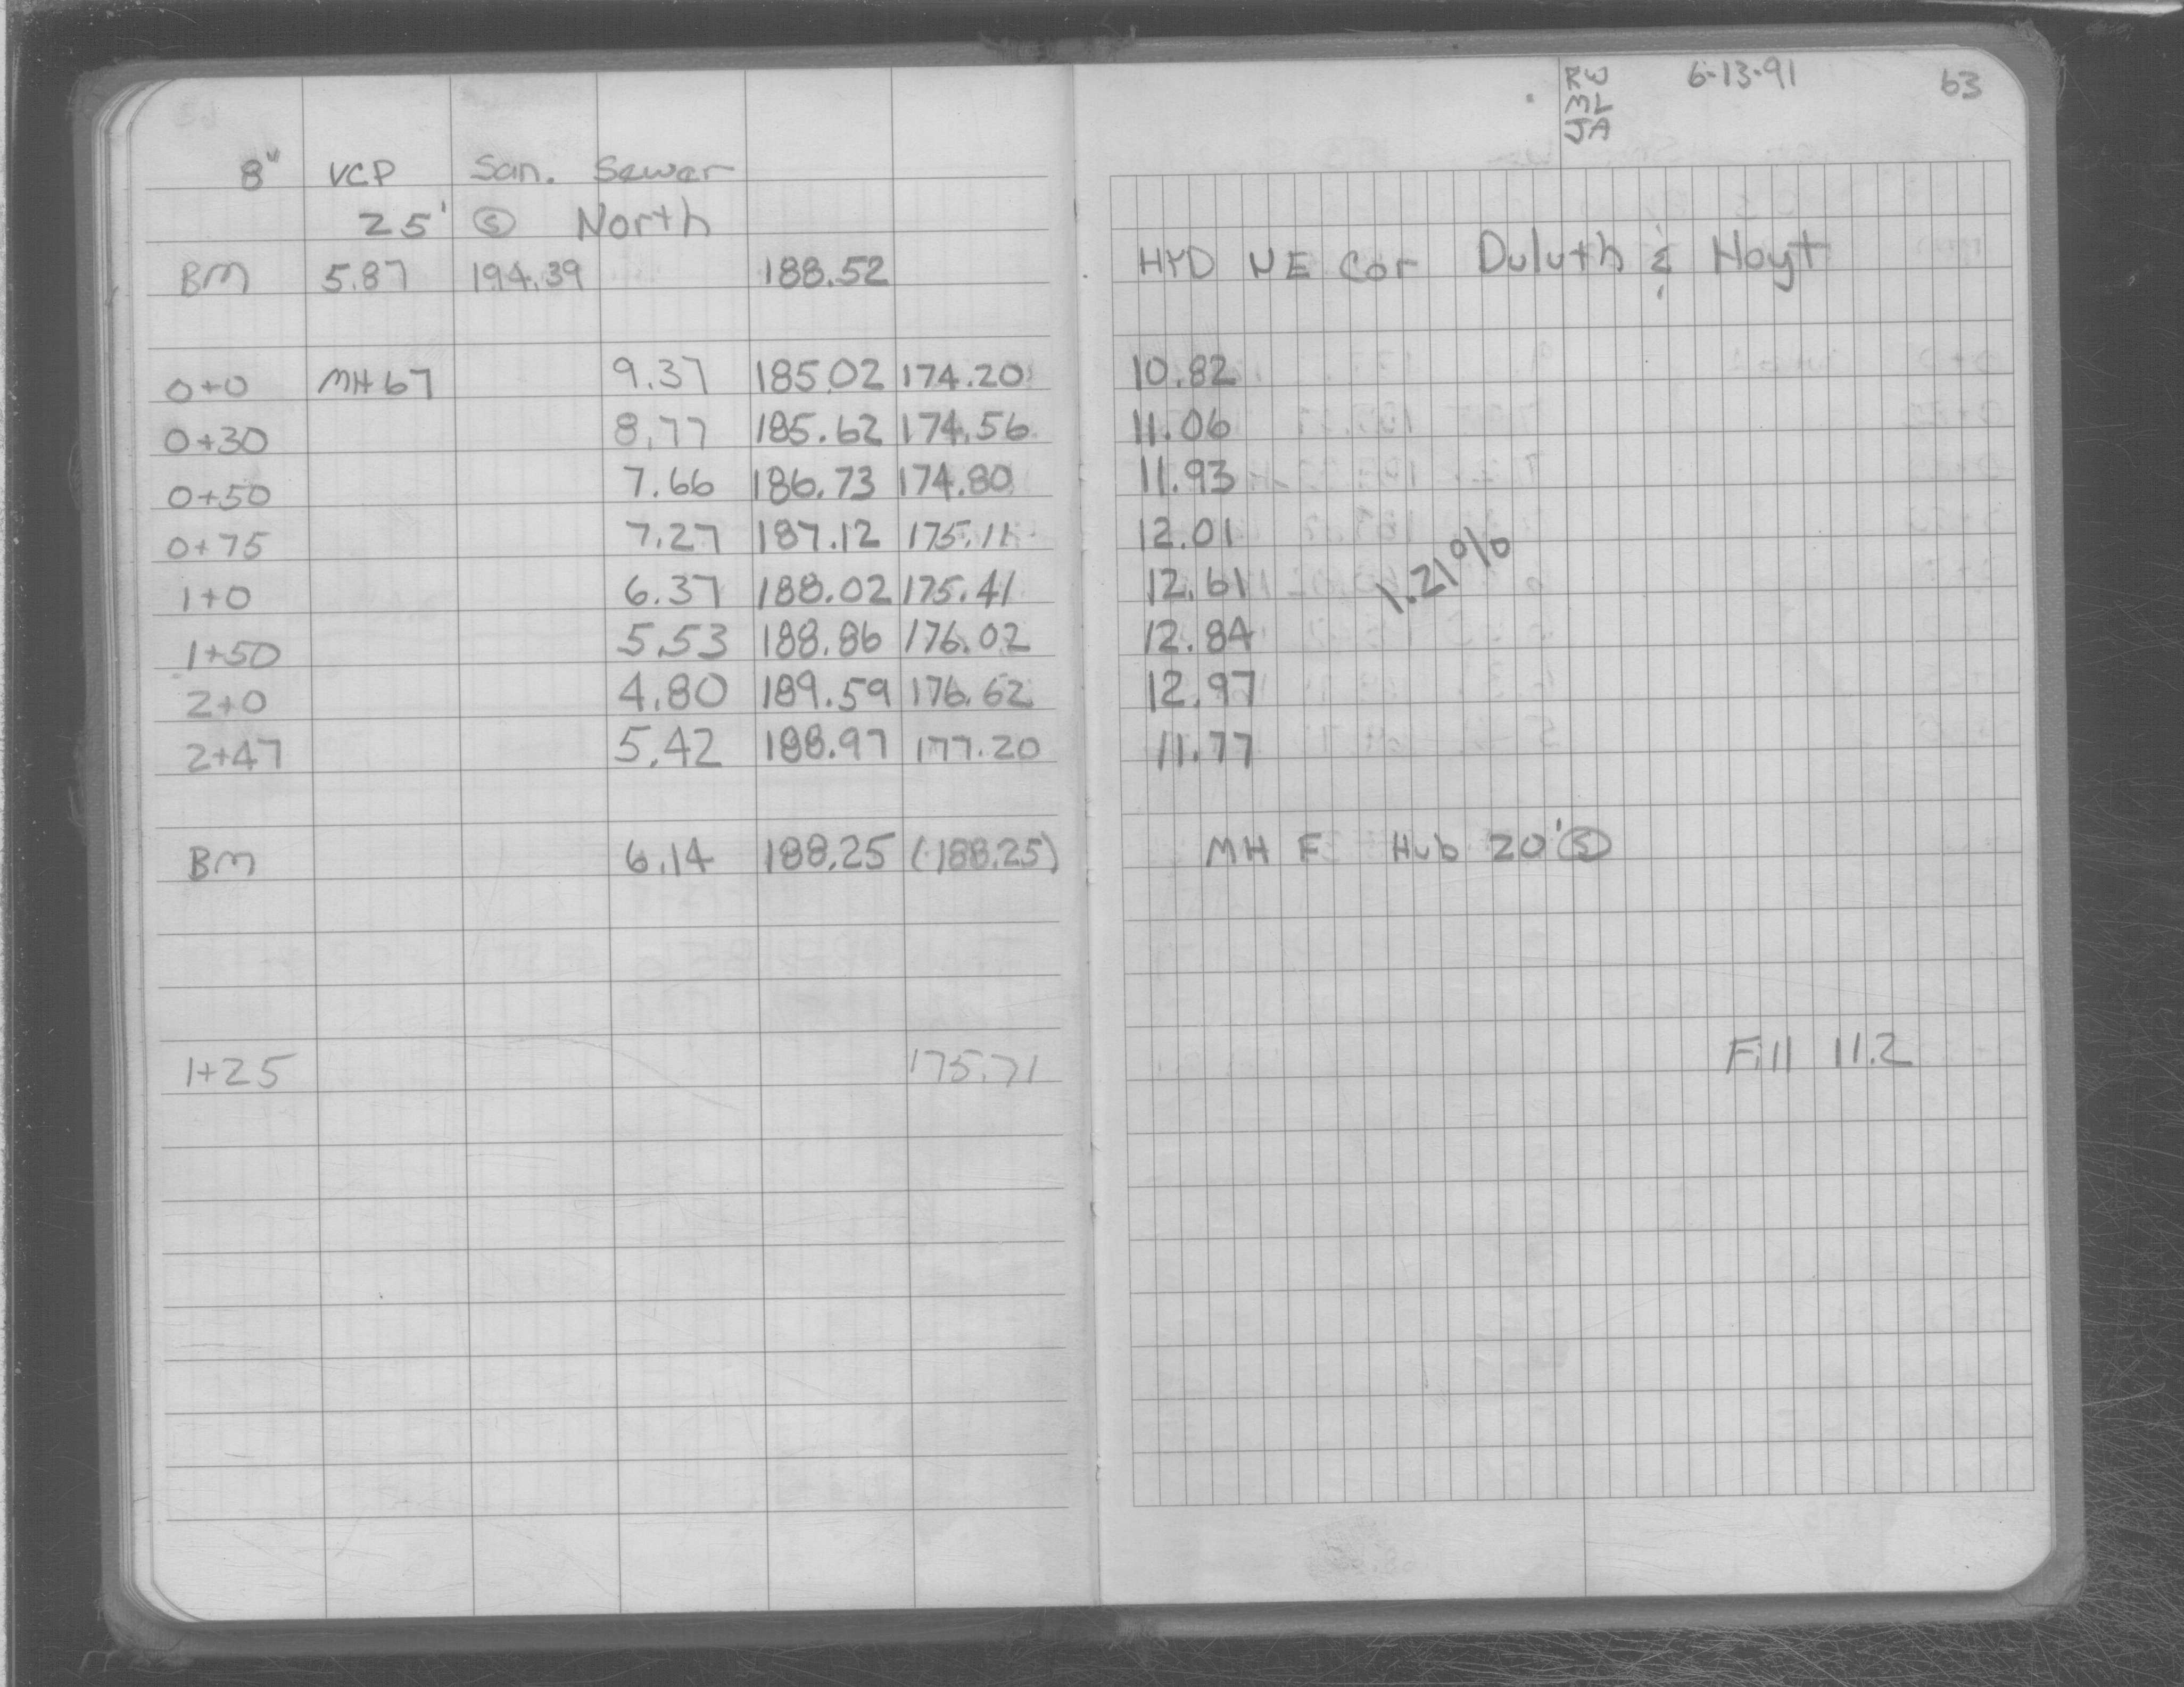 RW 6-13-91 63
ML
JA
8" VCP San. Sewer
25' Ⓢ North
BM 5.87 194.39 188.52 HYD NE Cor Duluth & Hoyt
0+0 MH67 9.37 185.02 174.20 10.82
0+30 8.77 185.62 174.56 11.06
0+50 7.66 186.73 174.80 11.93
0+75 7.27 187.12 175.11 12.01
1.21%
1+0 6.37 188.02 175.41 12.61
1+50 5.53 188.86 176.02 12.84
2+0 4.80 189.59 176.62 12.97
2+47 5.42 188.97 177.20 11.77
BM 6.14 188.25 (188.25) MH F Hub 20' Ⓢ
1+25 175.71 Fill 11.2